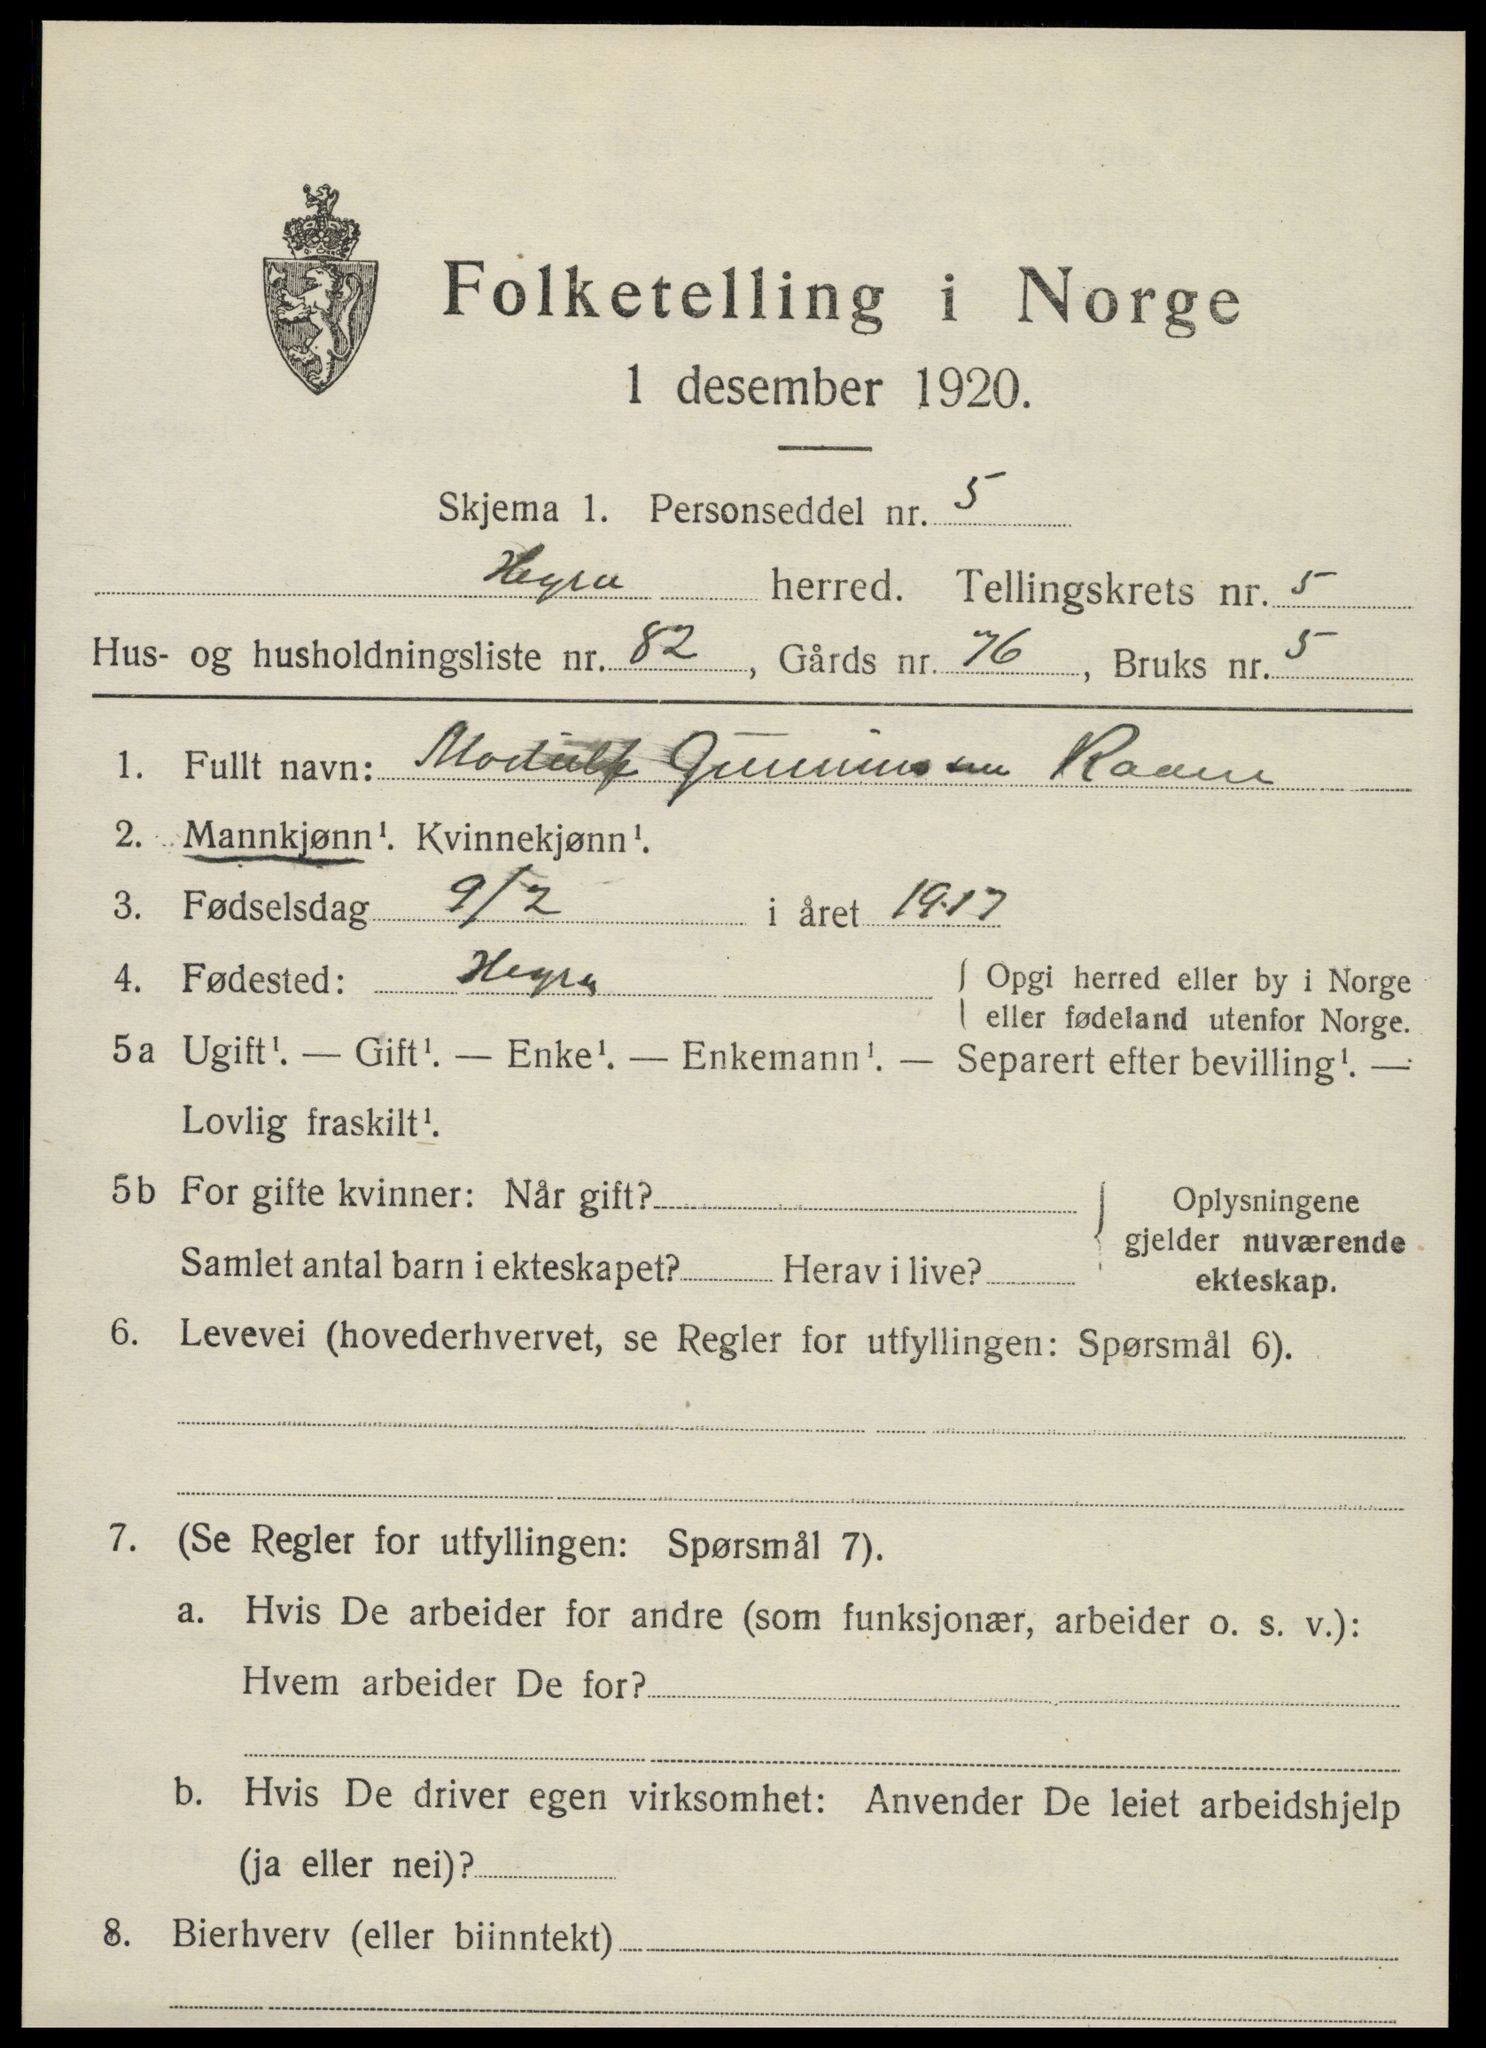 Folketelling i Norge
1 desember 1920.
Skjema 1. Personseddel nr. 5
Hegra herred. Tellingskrets nr. 5
Hus- og husholdningsliste nr. 82, Gårds nr. 76, Bruks nr. 5
1. Fullt navn: Modulf Raaen
2. Mannkjønn¹. Kvinnekjønn¹.
3. Fødselsdag 9/2 i året 1917
4. Fødested: Hegra { Opgi herred eller by i Norge
eller fødeland utenfor Norge.
5a Ugift¹. — Gift¹. — Enke¹. — Enkemann¹. — Separert efter bevilling¹. —
Lovlig fraskilt¹.
5b For gifte kvinner: Når gift?
Samlet antal barn i ekteskapet? Herav i live?
Oplysningene
gjelder nuværende
ekteskap.
6. Levevei (hovederhvervet, se Regler for utfyllingen: Spørsmål 6).
7. (Se Regler for utfyllingen: Spørsmål 7).
a. Hvis De arbeider for andre (som funksjonær, arbeider o. s. v.):
Hvem arbeider De for?
b. Hvis De driver egen virksomhet: Anvender De leiet arbeidshjelp
(ja eller nei)?
8. Bierhverv (eller biinntekt)